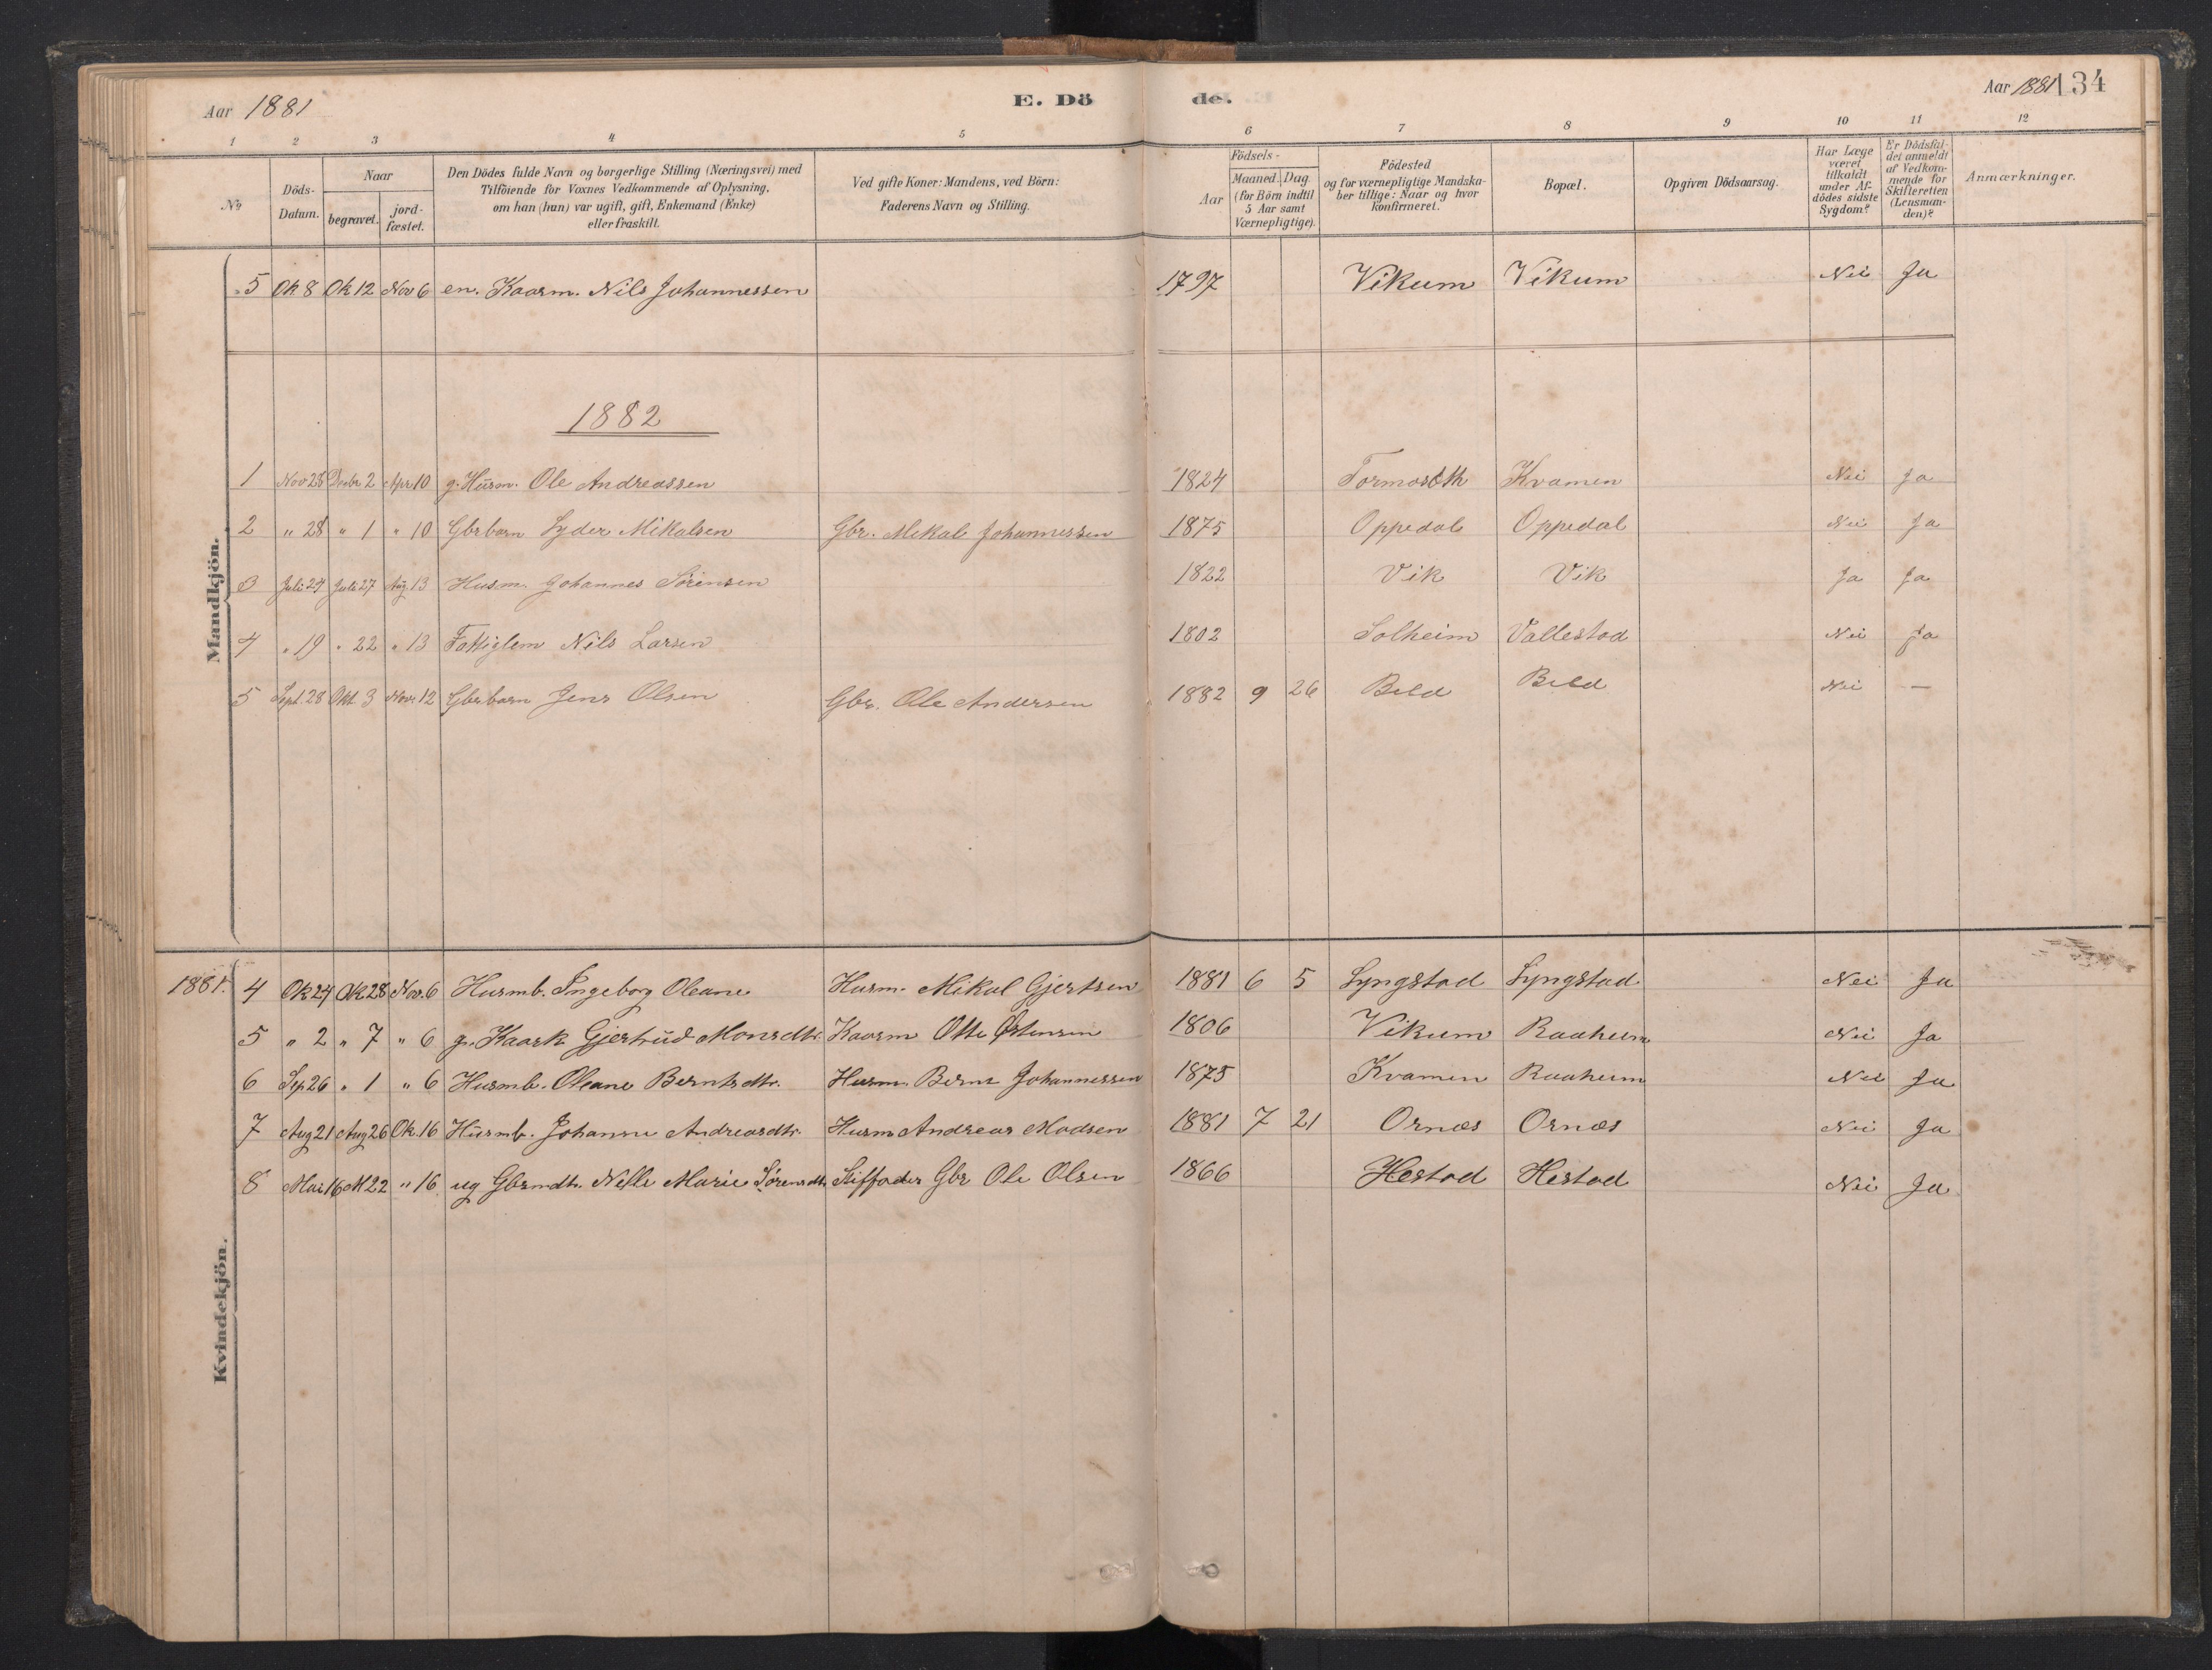 Aar 1881
E. Dö
de.
Aar 1881
134
1 2 3 4 5 6 7 8 9 10 11 12
No
Döds-Datum.
Naar
begravet.
jord-fæstet.
Den Dödes fulde Navn og borgerlige Stilling (Næringsvei) med
Tilföiende for Voxnes Vedkommende af Oplysning,
om han (hun) var ugift, gift, Enkemand (Enke)
eller fraskilt.
Ved gifte Koner: Mandens, ved Börn:
Faderens Navn og Stilling.
Födsels-
Aar
Maaned. Dag.
(for Börn indtil
5 Aar samt
Værnepligtige).
Födested
og for værnepligtige Mandska-
ber tillige: Naar og hvor
konfirmeret.
Bopæl.
Opgiven Dödsaarsag.
Har Læge
været
tilkaldt
under Af-
dödes sidste
Sygdom?
Er Dödsfal-
det anmeldt
af Vedkom-
mende for
Skifteretten
(Lensman-
den)?
Anmærkninger.
Mandkjön.
5 Ok 8 Ok 12 Nov 6 en. Kaarm. Nils Johannessen 1797 Vikum Vikum Nei Ja
1882
1 Nov 28 Decbr 2 Apr 10 g. Husm. Ole Andreassen 1824 Kvamen Nei Ja
2 " 28 " 1 " 10 Gbrbarn Lyder Mikalsen Gbr. Mikal Johannessen 1875 Oppedal Oppedal Nei Ja
3 Juli 24 Juli 27 Aug. 13 Husm. Johannes Sörensen 1822 Vik Vik Ja Ja
4 " 19 " 22 " 13 Fattiglem Nils Larsen 1802 Solheim Vallestad Nei Ja
5 Sept. 28 Okt. 3 Nov. 12 Gbrbarn Jens Olsen Gbr. Ole Andersen 1882 9 26 Beld Beld Nei —
Kvindekjön.
1881. 4 Ok 24 Ok 28 Nov. 6 Husmb. Ingeborg Oleane Husm. Mikal Gjertsen 1881 6 5 Lyngstad Lyngstad Nei Ja
5 " 2 " 7 " 6 g. Kaark Gjertrud Monsdtr. Kaarm Otte Østensen 1806 Vikum Raaheim Nei Ja
6 Sep 26 " 1 " 6 Husmb. Oleane Berntsdtr. Husm. Bernt Johannessen 1875 Kvamen Raaheim Nei Ja
7 Aug 21 Aug 26 Ok. 16 Husmb. Johanne Andreasdtr. Husm Andreas Madsen 1881 7 21 Ornæs Ornæs Nei Ja
8 Mai 16 M 22 " 16 ug Gbrmdtr. Nille Marie Sörensdtr. Stiffader Gbr Ole Olsen 1866 Hestad Hestad Nei Ja